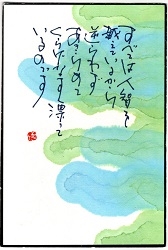 すべては人智を
越えているから
逆らわず
あきらめて
くらげは漂って
いるのです